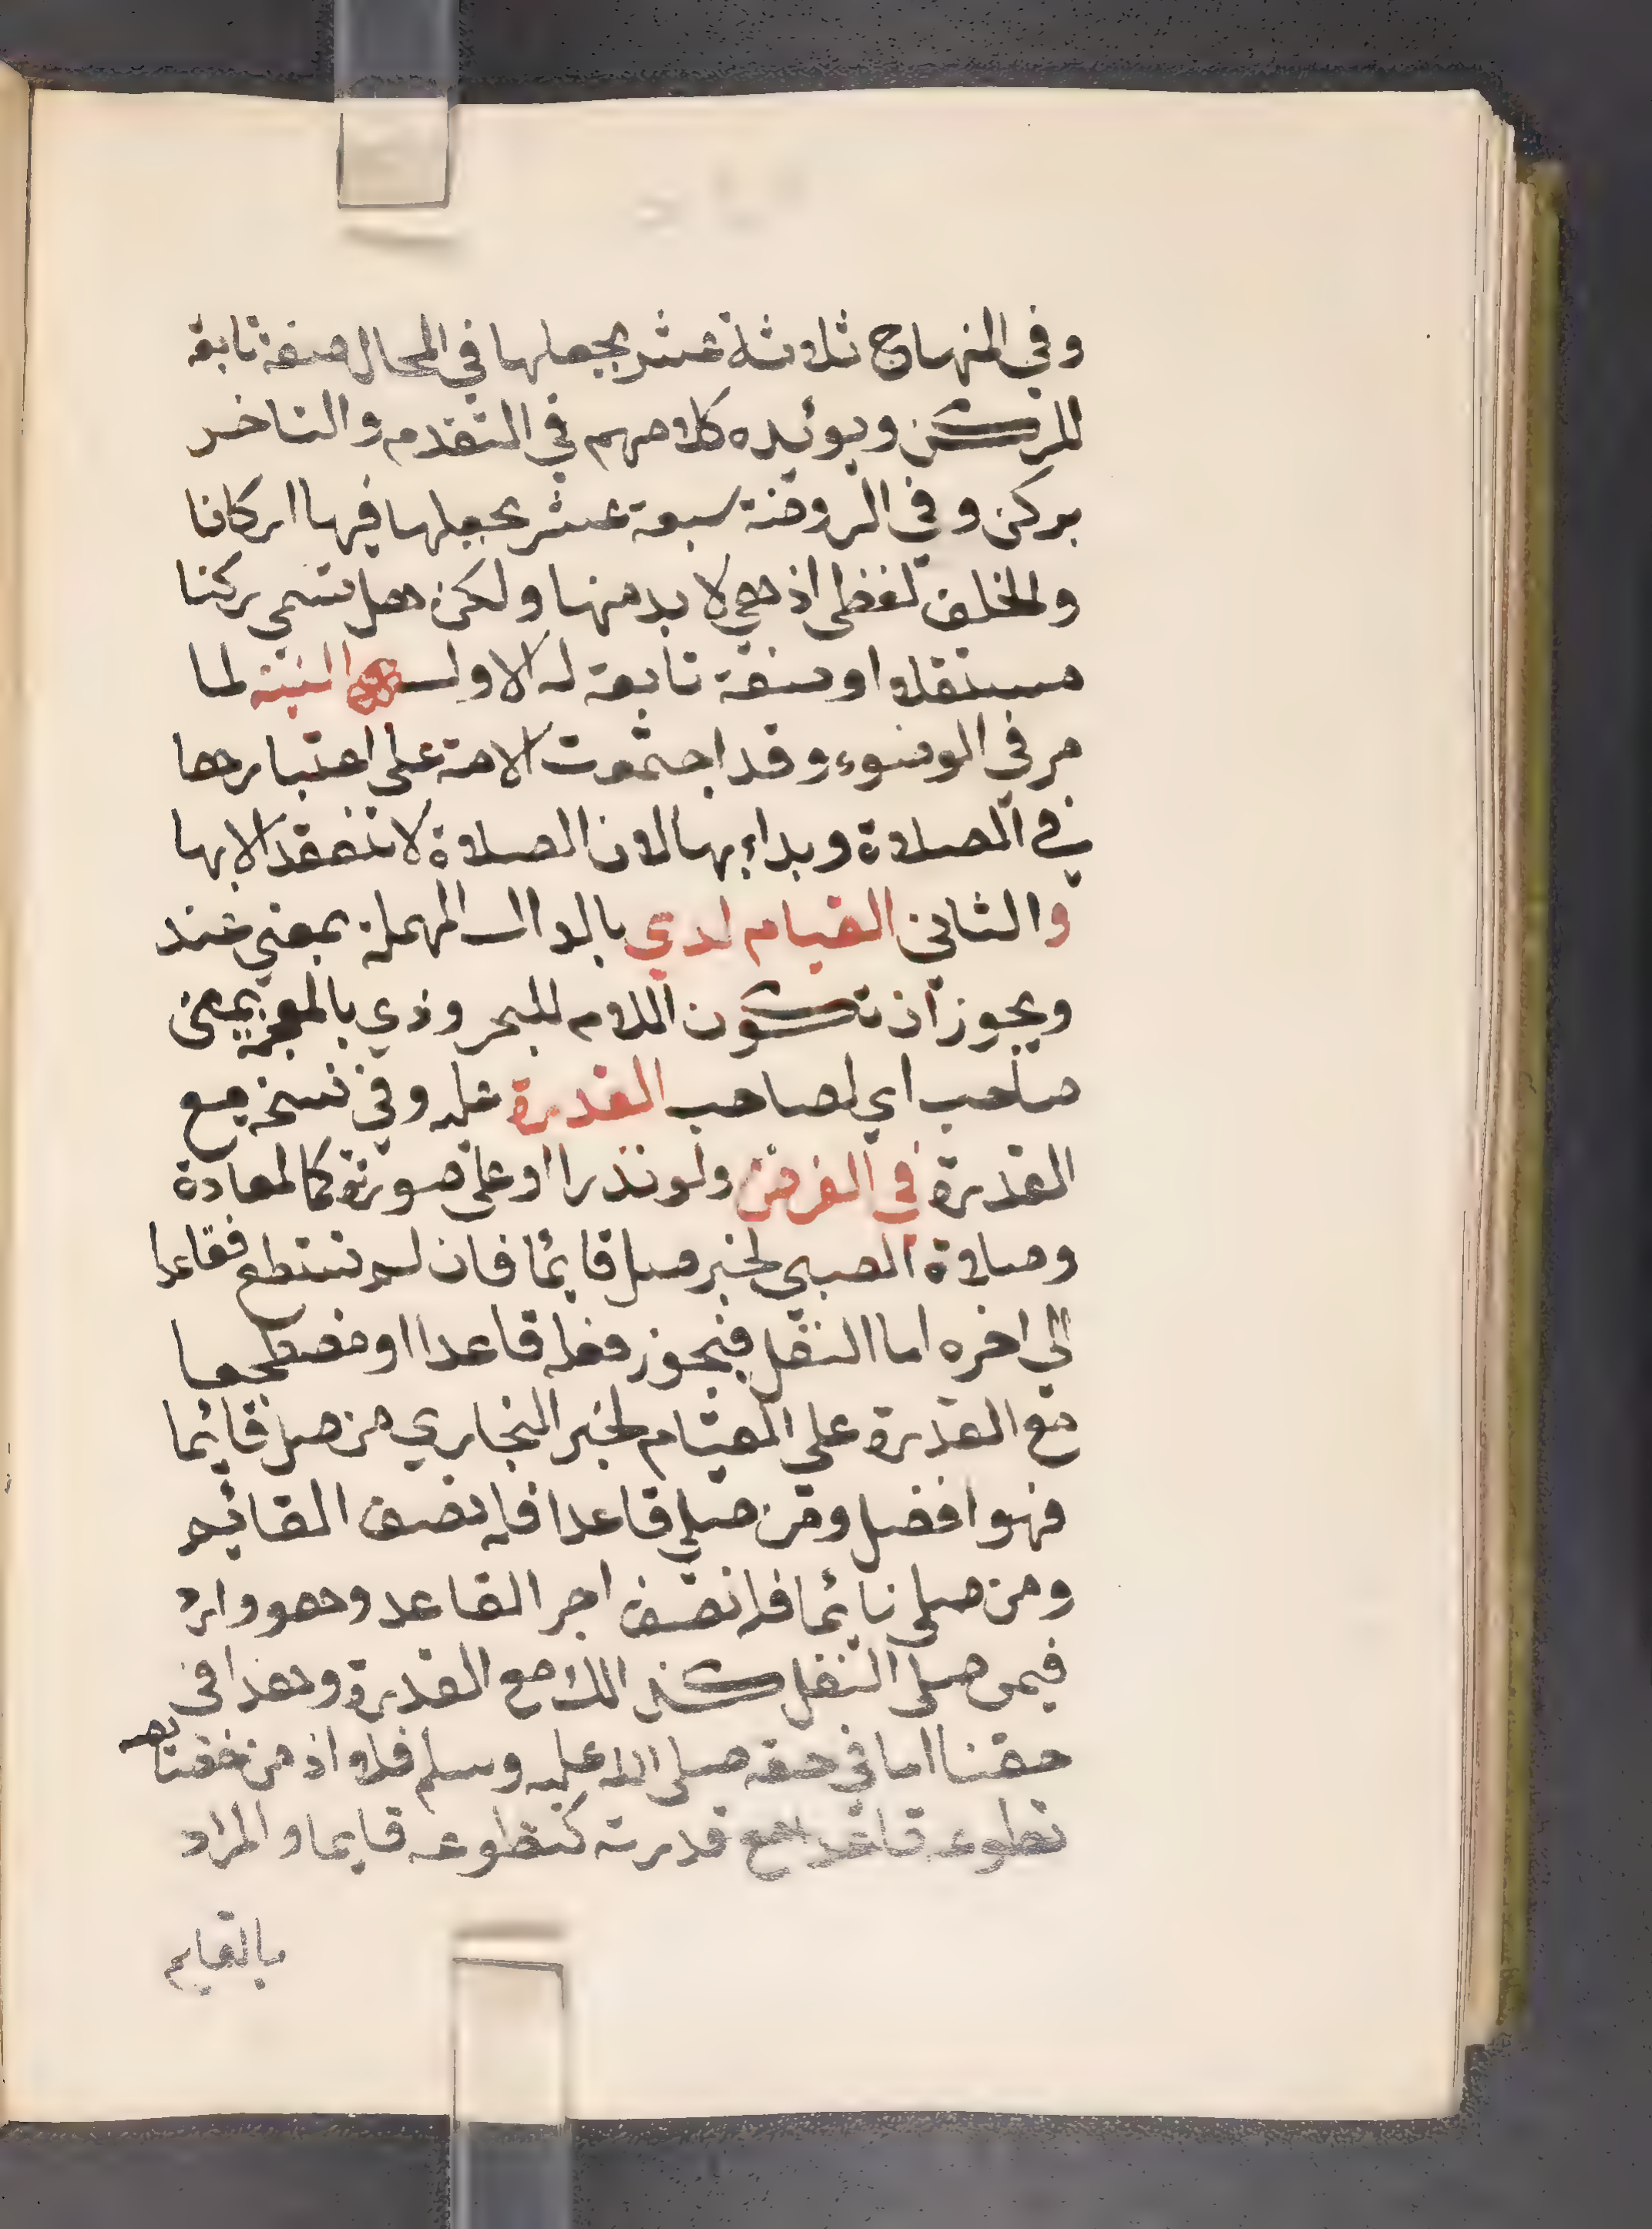 وفي المنهاج ثلاثة عشر بجعلها في المحال صفة تابعة
للركن ويوئيده كلامهم في التقدم والتاخر
بركن وفي الروضة سبعة عشر بجعلها فيها اركانا
والخلف لفظي اذ هي لا بد منها ولكن هل تسمي ركنا
مستقلا او صفة تابعة له الاول النية لما
مر في الوضوء وقد اجتمعت الامة على اعتبارها
في الصلاة وبداء بها لان الصلاة لا تنعقد الا بها
والثاني القيام لدي بالدال المهملة بمعني عند
ويجوز ان تكون اللام للجر وذي بالمعجمة بمعنى
صاحب اي لصاحب القدرة عليه وفي نسخ مع
القدرة في الفرض ولو نذرا او على صورته كالمعادة
وصلاة الصبي لخبر صل قائما فان لم تستطع فقاعدا
الي اخره اما النفل فيجوز فعله قاعدا او مضطجعا
مع القدرة على القيام لخبر البخاري من صل قائما
فهو افضل ومن صلي قاعدا فله نصف القائم
ومن صلى نائما فله نصف اجر القاعد وهو وارد
فيمن صلى النفل كذالك مع القدرة وهذا في
حقنا اما في حقه صلى الله عليه وسلم فلا اذ من خصائصه
تطوعه قاعدا مع قدرته كتطوعه قايما والمراد
بالقايم